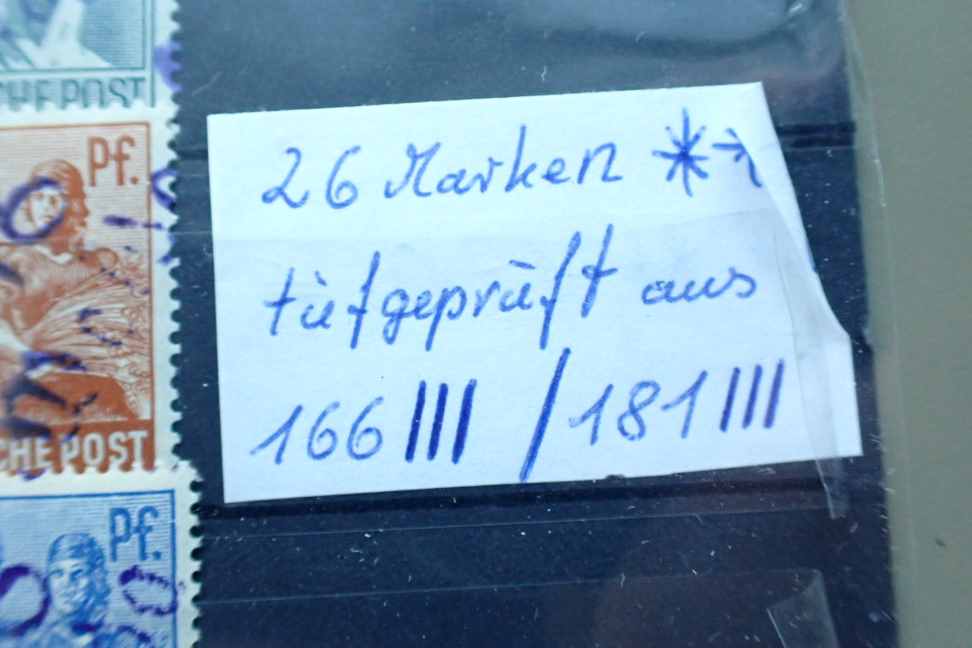 CHE POST
Pf.
CHE POST
Pf.
26 Marken **
tiefgeprüft aus
166 III / 181 III